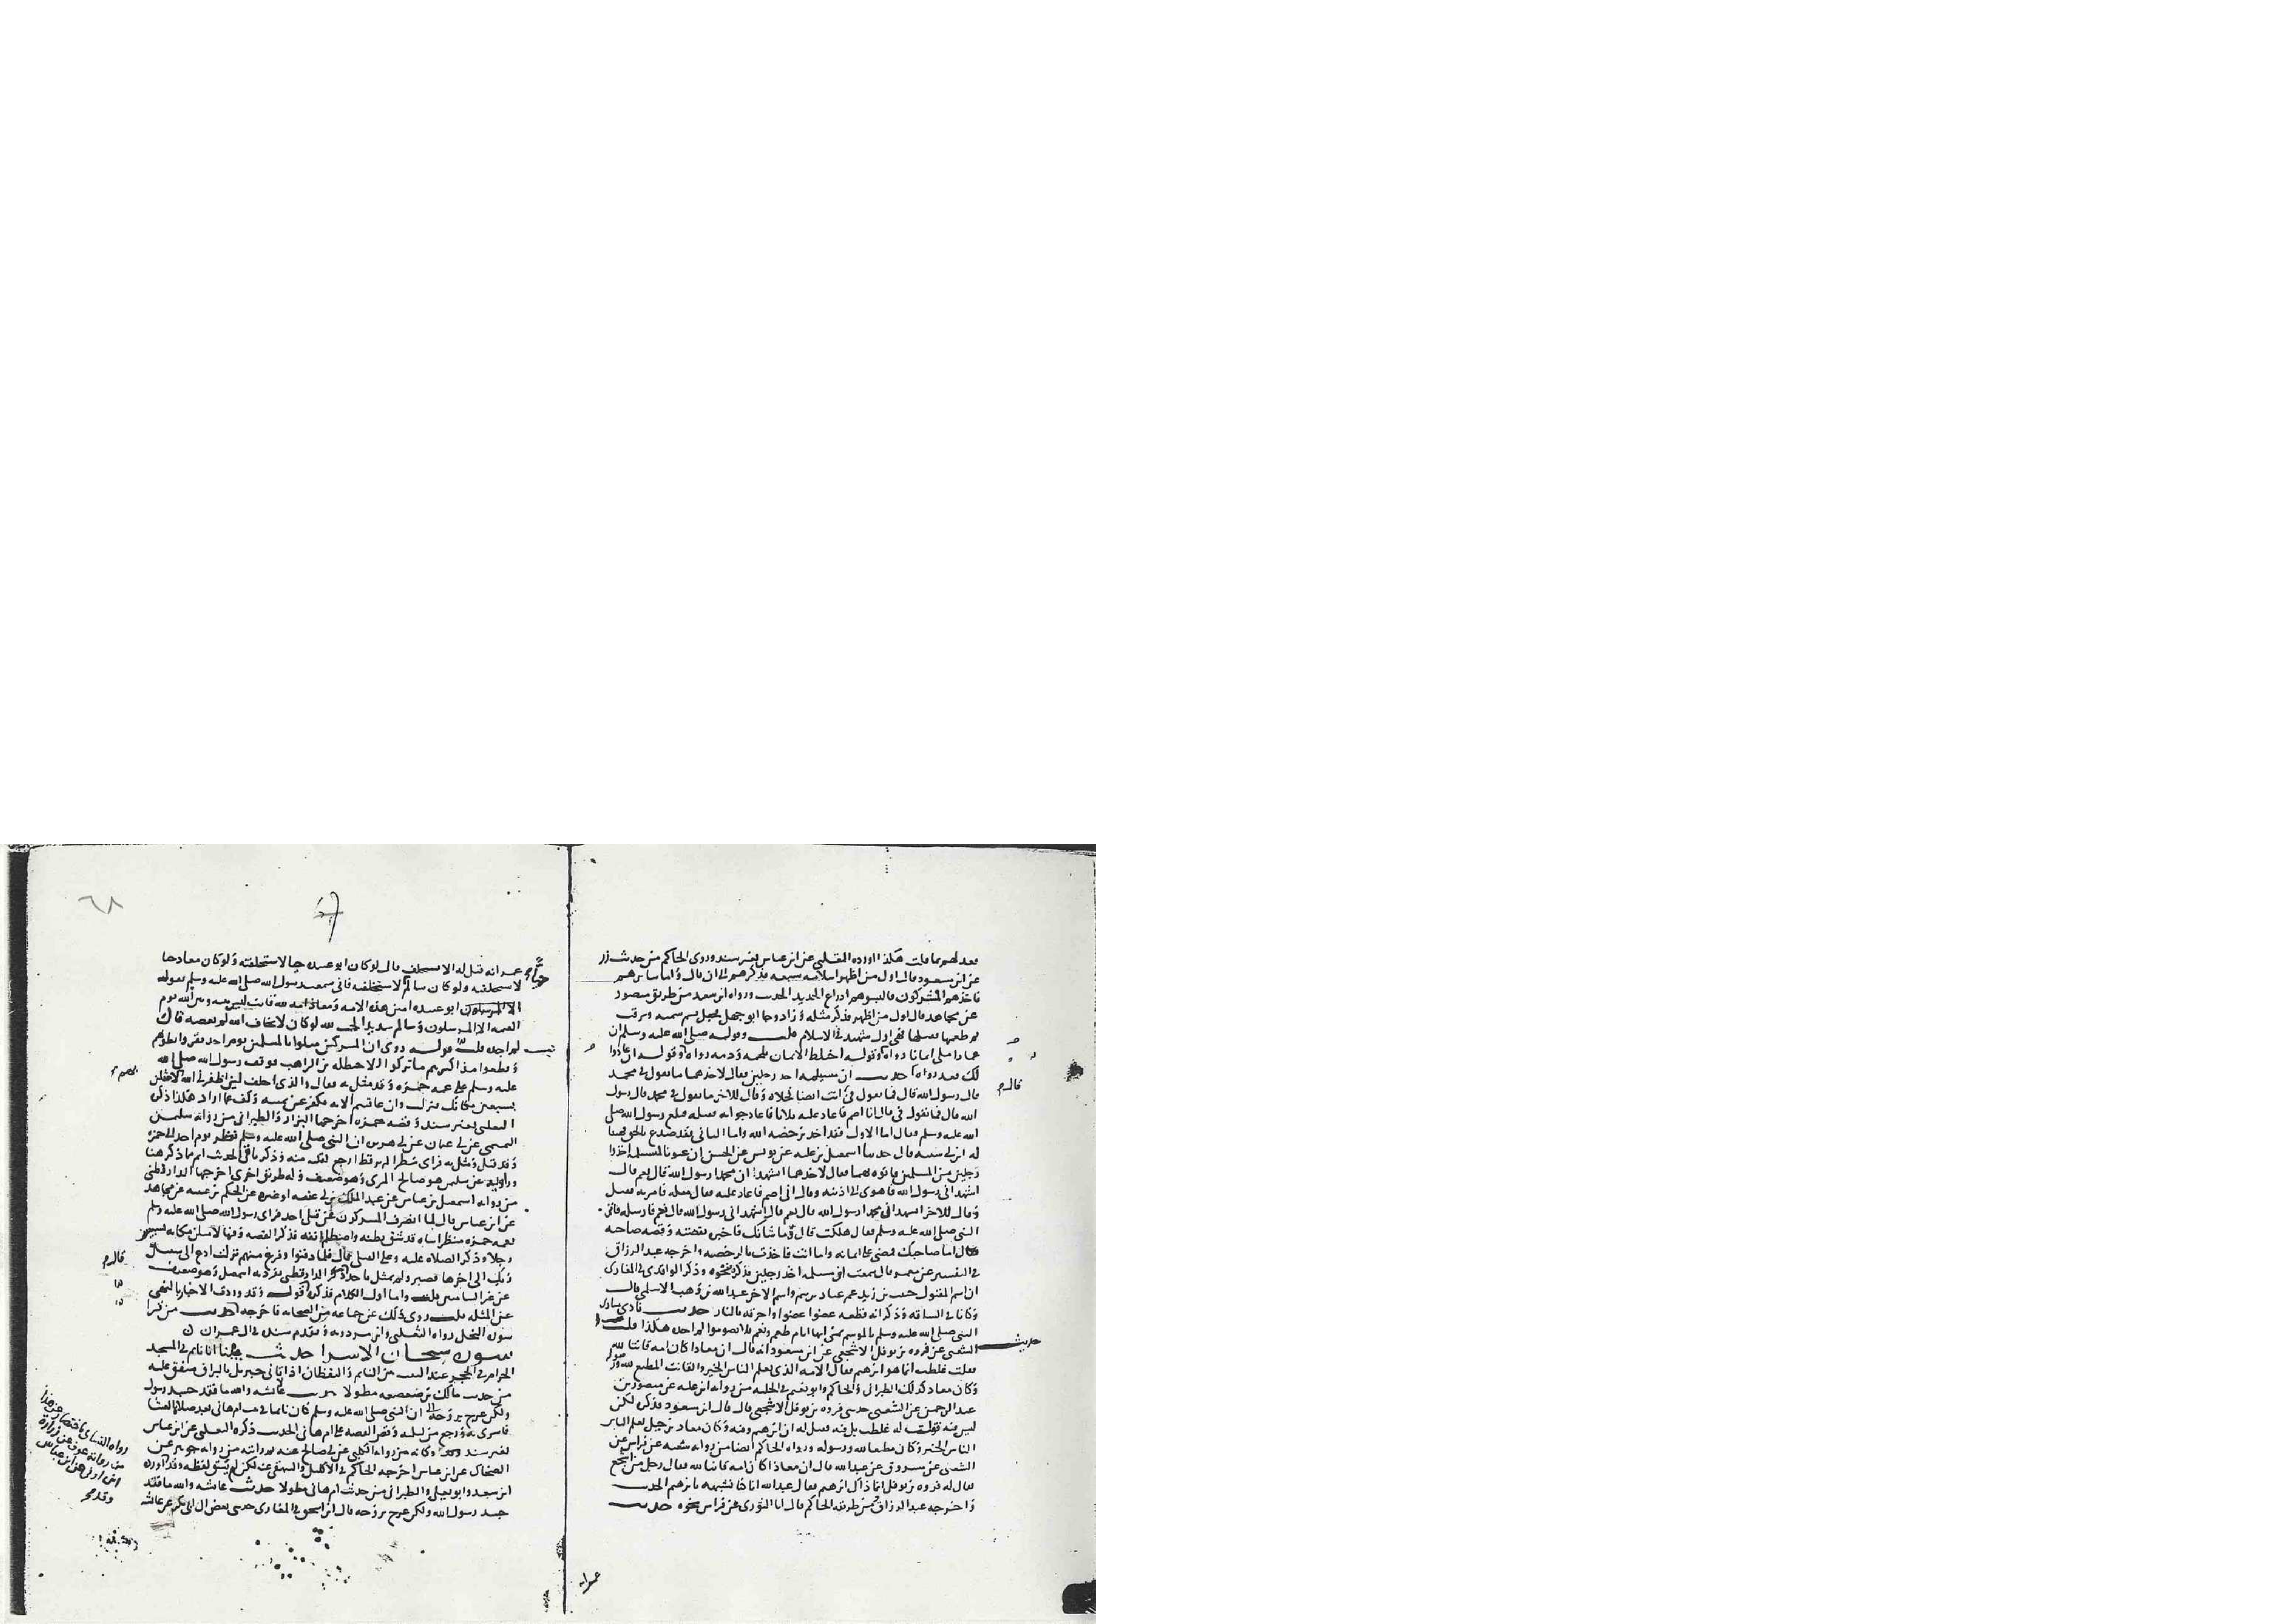 بعد لهم بما قلت هكذا اورده الثعلبي عن ابن عباس بغير سند وروى الحاكم من حديث زر
عن ابن مسعود قال اول من اظهر اسلامه سبعه فذكرهم الى ان قال واما سايرهم
فاخذهم المشركون فالبسوهم ادراع الحديد الحديث ورواه ابن سعد من طريق منصور
عن مجاهد قال اول من اظهر فذكر مثله وزاد وجا ابو جهل فجعل يشتم سميه ويرفث
ثم طعنها فقتلها فهي اول شهيد في الاسلام قلت وقوله صلى الله عليه وسلم ان
عمارا ملي ايمانا رواه وقوله اختلط الايمان بلحمه ودمه رواه وقوله ان عادوا
لك فعد رواه حديث ان مسيلمه اخذ رجلين فقال لاحدهما ما تقول في محمد
قال رسول الله قال فما تقول في قال انت ايضا فخلاه وقال للاخر ما تقول في محمد قال رسول
الله قال فما تقول في قال انا اصم فاعاد عليه ثلاثا فاعاد جوابه فقتله فبلغ رسول الله صلى
الله عليه وسلم فقال اما الاول فقد اخذ برخصه الله واما الثاني فقد صدع بالحق فهنيا
له ابن ابي شيبه قال حدثنا اسمعيل بن عليه عن يونس عن الحسن ان عيونا لمسيلمه اخذوا
رجلين من المسلمين فاتوه بهما فقال لاحدهما اتشهد ان محمدا رسول الله قال نعم قال
اتشهد اني رسول الله فاهوى الى اذنيه وقال اني اصم فاعاد عليه فقال مثله فامر به فقتل
وقال للاخر اتشهد ان محمدا رسول الله قال نعم قال اتشهد اني رسول الله قال نعم فارسله فاتى
النبي صلى الله عليه وسلم فقال هلكت قال وما شانك فاخبره بقصته وقصه صاحبه
فقال اما صاحبك فمضى على ايمانه واما انت فاخذت بالرخصه واخرجه عبد الرزاق
في التفسير عن معمر قال سمعت ان مسيلمه اخذ رجلين فذكره بنحوه وذكر الواقدي في المغازي
ان اسم المقتول حبيب بن زيد عم عباد بن تميم واسم الاخر عبد الله بن وهب الاسلمي قال
وكانا في الساقه وذكر انه قطعه عضوا عضوا واحرقه بالنار حديث نادى منادى
النبي صلى الله عليه وسلم بالموسم بمنى انها ايام طعم ونعم فلا تصوموا لم اجده هكذا قلت
حديث
الشعبي عن فروه بن نوفل الاشجعي عن ابن مسعود انه قال ان معاذا كان امه قانتا لله
فقلت غلطت انما هو ابرهيم فقال الامه الذي يعلم الناس الخير والقانت المطيع لله ورسوله
وكان معاذ كذلك الطبراني والحاكم وابو نعيم في الحليه من روايه ابن عليه عن منصور بن
عبد الرحمن عن الشعبي حدثني فروه بن نوفل الاشجعي قال قال ابن مسعود فذكره لكن
الناس الخير وكان مطيعا لله ورسوله ورواه الحاكم ايضا من روايه شعبه عن فراس عن
الشعبي عن مسروق عن عبد الله قال ان معاذا كان امه قانتا لله فقال رجل من اشجع
يقال له فروه بن نوفل انما ذاك ابرهيم فقال عبد الله انا كنا نشبهه بابرهيم الحديث
واخرجه عبد الرزاق ومن طريقه الحاكم قال انا الثوري عن فراس نحوه حديث
عمر انه
٦٨
عمر انه قيل له الا تستخلف قال لو كان ابو عبيده حيا لاستخلفته ولو كان معاذ حيا
لاستخلفته ولو كان سالم لاستخلفته فاني سمعت رسول الله صلى الله عليه وسلم يقول
ابو عبيده امين هذه الامه ومعاذ امه لله قانت ليس بينه وبين الله يوم
القيمه الا المرسلون وسالم شديد الحب لله لو كان لا يخاف الله لم يعصه قال
لم اجده قلت قوله روى ان المشركين مثلوا بالمسلمين يوم احد بقروا بطونهم
وقطعوا مذاكيرهم ما تركوا الا حنظله بن الراهب فوقف رسول الله صلى الله
عليه وسلم على عمه حمزه وقد مثل به فقال والذي احلف لين اظفرني الله لامثلن
بسبعين مكانك فنزلت وان عاقبتم الايه فكفر عن يمينه وكف عما اراد هكذا ذكره
الثعلبي بغير سند وقصه حمزه اخرجها البزار والطبراني من روايه سليمن
التيمي عن ابي عثمان عن ابي هريره ان النبي صلى الله عليه وسلم نظر يوم احد الى حمزه
وقد قتل ومثل به فراى منظرا لم ير قط اوجع لقلبه منه وذكر باقي الحديث اتم مما ذكر هنا
وراويه عن سليمن هو صالح المري وهو ضعيف وله طريق اخرى اخرجها الدارقطني
من روايه اسمعيل بن عياش عن عبد الملك بن ابي غنيه او غيره عن الحكم بن عتيبه عن مجاهد
عن ابن عباس قال لما انصرف المشركون عن قتلى احد فراى رسول الله صلى الله عليه وسلم
بعمه حمزه منظرا ساءه قد شق بطنه واصطلم انفه فذكر القصه وفيها لامثلن مكانه بسبعين
رجلا وذكر الصلاه عليه وعلى القتلى قال فلما دفنوا وفرغ منهم نزلت ادع الى سبيل
ربك الى اخرها فصبر ولم يمثل باحد قال الدارقطني تفرد به اسمعيل وهو ضعيف
عن غير الشاميين قلت واما اول الكلام فذكره قوله وقد وردت الاخبار بالنهي
عن المثله قلت روى ذلك عن جماعه من الصحابه فاخرجه حديث من قرا
سوره النحل رواه الثعلبي وابن مردويه وتقدم سنده في ال عمران
سوره سبحان الاسرا حديث بينا انا نايم في المسجد
الحرام في الحجر عند البيت بين النايم واليقظان اذ اتاني جبريل بالبراق متفق عليه
من حديث مالك بن صعصعه مطولا حديث عايشه والله ما فقد جسد رسول
ولكن عرج بروحه ان النبي صلى الله عليه وسلم كان نايما في بيت ام هاني بعد صلاة العشا
فاسري به ورجع من ليلته وقص القصه على ام هاني الحديث ذكره الثعلبي عن ابن عباس
بغير سند وكانه من روايه الكلبي عن ابي صالح عنه من روايه جويبر عن
الضحاك عن ابن عباس اخرجه الحاكم في الاكليل والبيهقي عنه لكن لم يسق لفظه وقد اورده
ابن سعد وابو يعلى والطبراني من حديث ام هاني مطولا حديث عايشه والله ما فقد
جسد رسول الله ولكن عرج بروحه قال ابن اسحق في المغازي حدثني بعض ال ابي بكر عن عايشه
رواه النسائي باختصار من هذا
من روايه عوف عن زراره
ابن اوفى عن ابن عباس